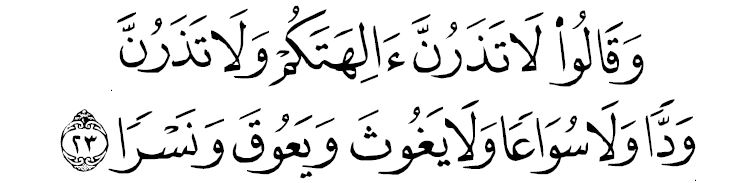 وَقَالُوا۟ لَا تَذَرُنَّ ءَالِهَتَكُمْ وَلَا تَذَرُنَّ
وَدًّا وَلَا سُوَاعًا وَلَا يَغُوثَ وَيَعُوقَ وَنَسْرًا ٢٣